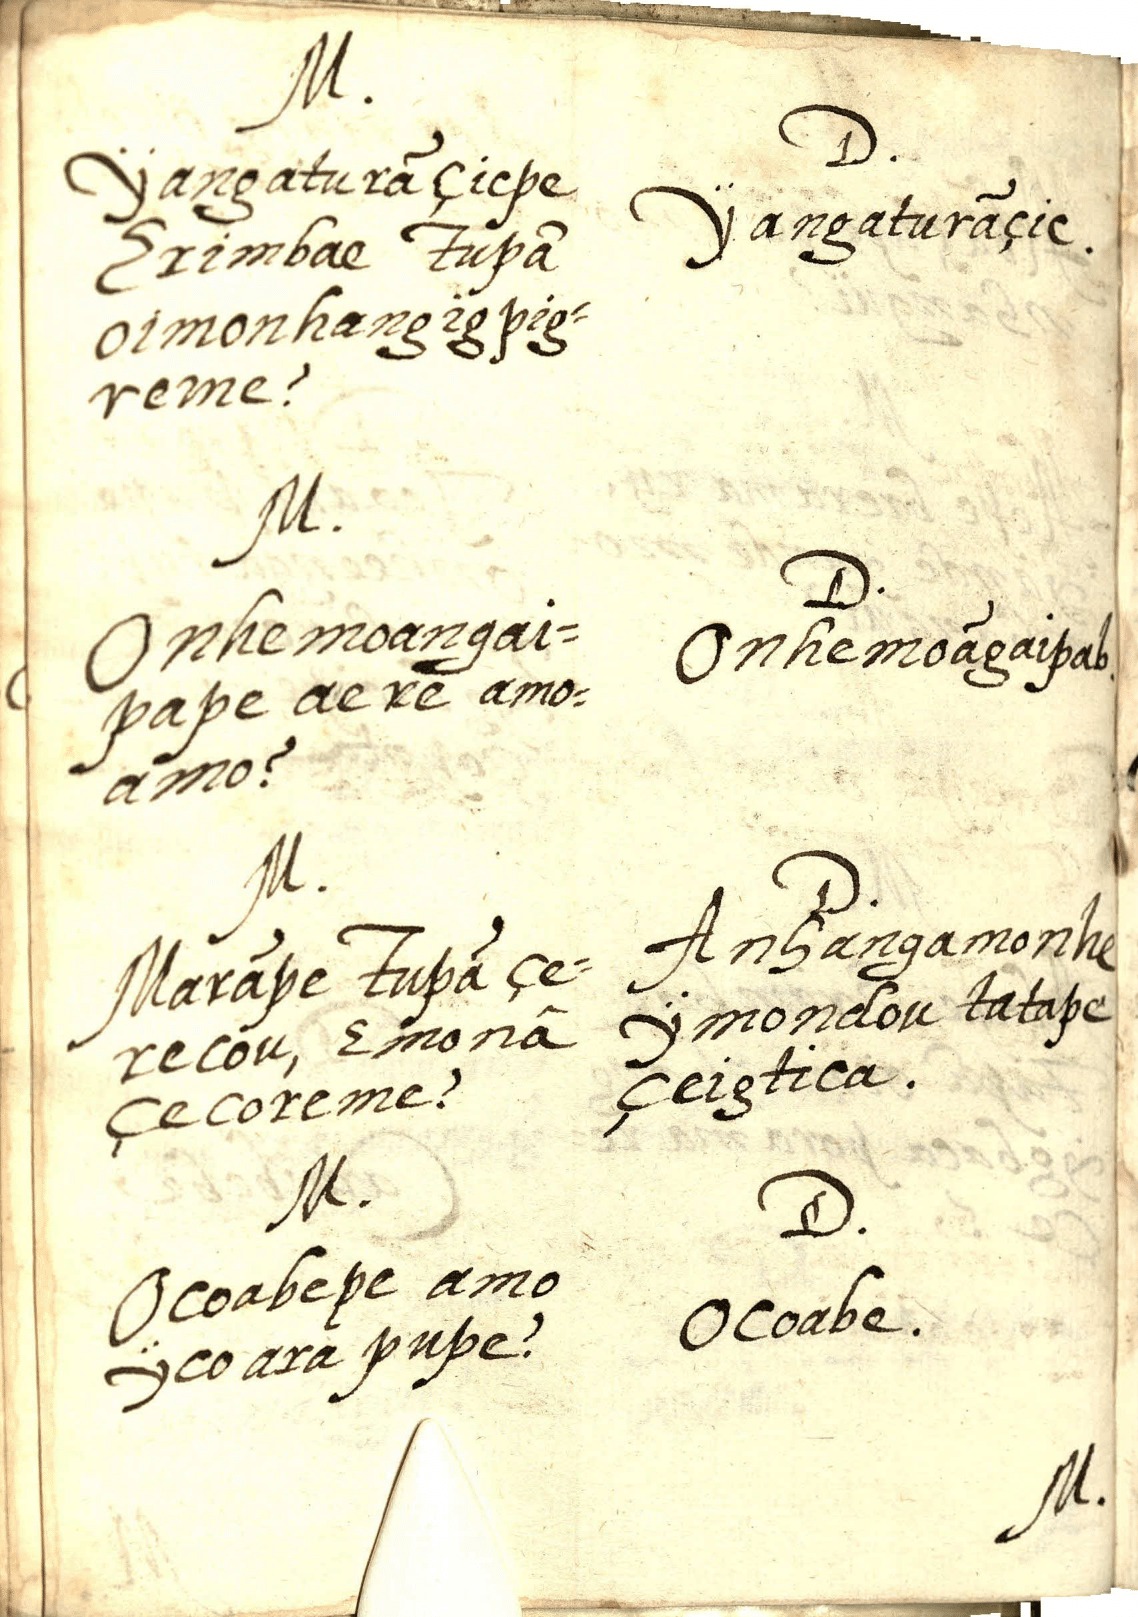 M.
Ÿangaturãçicpe
Erimbae Tupã
oimonhangïgpig=
reme?
D.
Ÿangaturãçic.
M.
Onhemoangai=
pape aerẽ amo=
amo?
D.
Onhemoãgaipab.
M.
Marãpe Tupã çe=
recou, Emonã
çecoreme?
D.
Anhangamonhe
Ÿmondou tatape
çeigtica.
M.
Ocoabepe amo
Ÿco ara pupe?
D.
Ocoabe.
M.